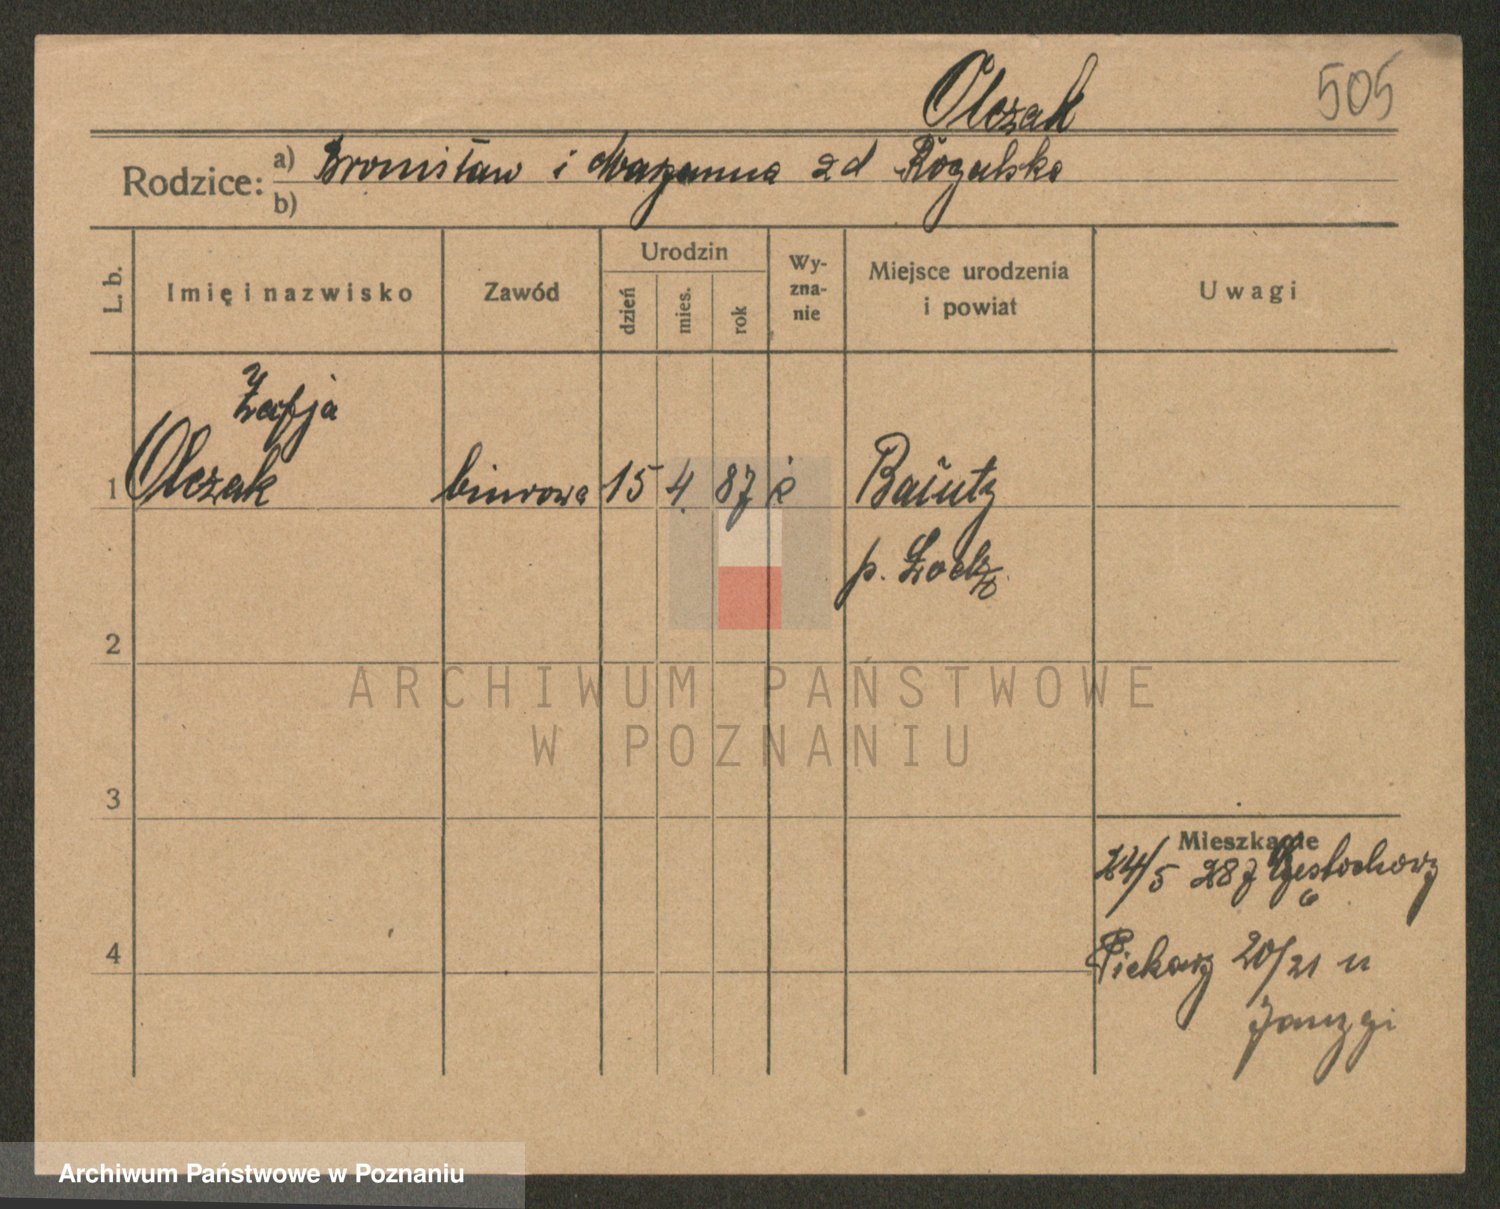 Olczak 505
Rodzice: a) Bronisław i Maryanna zd Rogalska
b)
L. b.
Imię i nazwisko
Zawód
Urodzin
dzień mies. rok
Wy-
zna-
nie
Miejsce urodzenia
i powiat
Uwagi
Zofja
1 Olczak biurowa 15 4. 87 Bałuty
p. Łodź
2
ARCHIWUM PAŃSTWOWE
W POZNANIU
3
Mieszkanie
24/5 28 z Częstochowy
4
Piekary 20/21 u
Archiwum Państwowe w Poznaniu